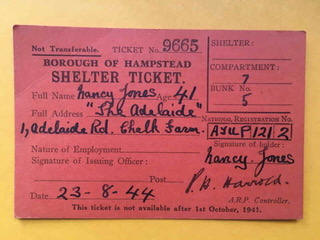 Not Transferable. TICKET No. 9665
BOROUGH OF HAMPSTEAD
SHELTER TICKET.
Full Name Nancy Jones Age 41
Full Address "The Adelaide"
1, Adelaide Rd. Chalk Farm.
Nature of Employment
Signature of Issuing Officer:
Post
Date 23-8-44
SHELTER:
COMPARTMENT:
7
BUNK No.
5
NATIONAL REGISTRATION No.
121 2
Signature of holder:
Nancy Jones
P. H. Harrold.
A.R.P. Controller.
This ticket is not available after 1st October, 1941.